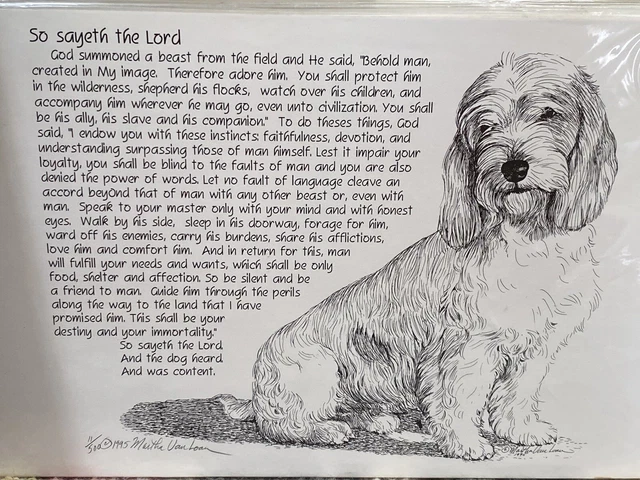 So sayeth the Lord
God summoned a beast from the field and He said, "Behold man,
created in My image. Therefore adore him. You shall protect him
in the wilderness, shepherd his flocks, watch over his children, and
accompany him wherever he may go, even unto civilization. You shall
be his ally, his slave and his companion." To do theses things, God
said, "I endow you with these instincts: faithfulness, devotion, and
understanding surpassing those of man himself. Lest it impair your
loyalty, you shall be blind to the faults of man and you are also
denied the power of words. Let no fault of language cleave an
accord beyond that of man with any other beast or, even with
man. Speak to your master only with your mind and with honest
eyes. Walk by his side, sleep in his doorway, forage for him,
ward off his enemies, carry his burdens, share his afflictions,
love him and comfort him. And in return for this, man
will fulfill your needs and wants, which shall be only
food, shelter and affection. So be silent and be
a friend to man. Guide him through the perils
along the way to the land that I have
promised him. This shall be your
destiny and your immortality."
So sayeth the Lord
And the dog heard
And was content.
11/500 © 1995 Martha Van Loan
© Martha Van Loan